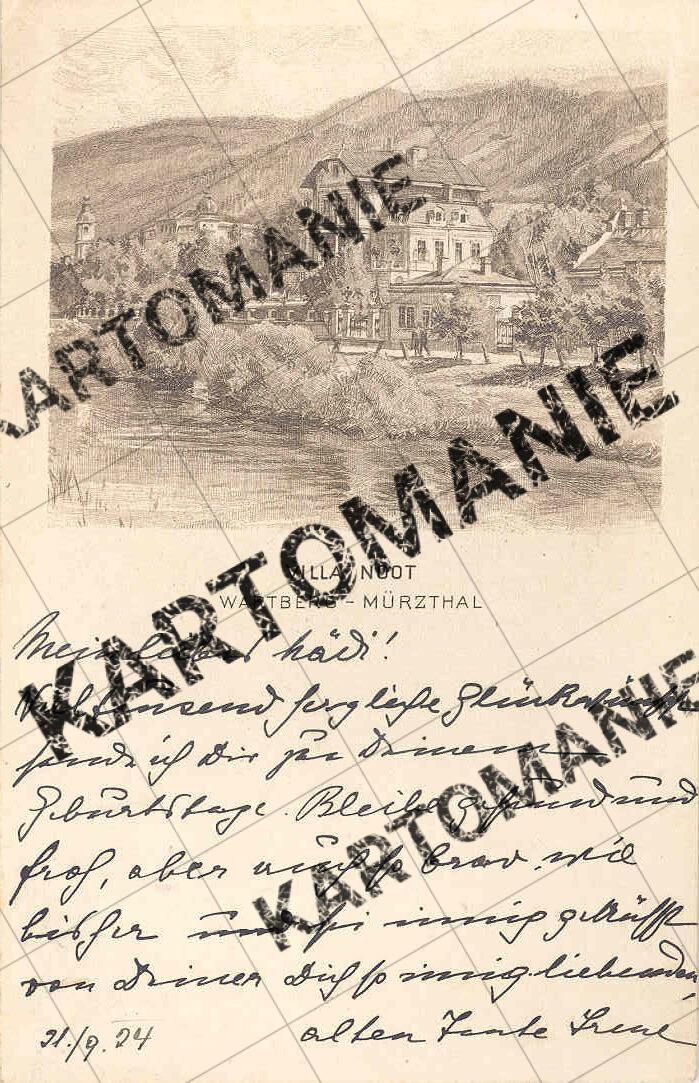 KARTOMANIE
KARTOMANIE
VILLA NOOT
WARTBERG - MÜRZTHAL
Mein liebes Hädi!
Vieltausend herzliche Glückwünsche
sende ich Dir zu Deinem
Geburtstage. Bleibe gesund und
froh, aber auch so brav wie
bisher und sei innig geküßt
von Deiner Dich so innig liebenden,
alten Tante Irene
21./9. 24
KARTOMANIE